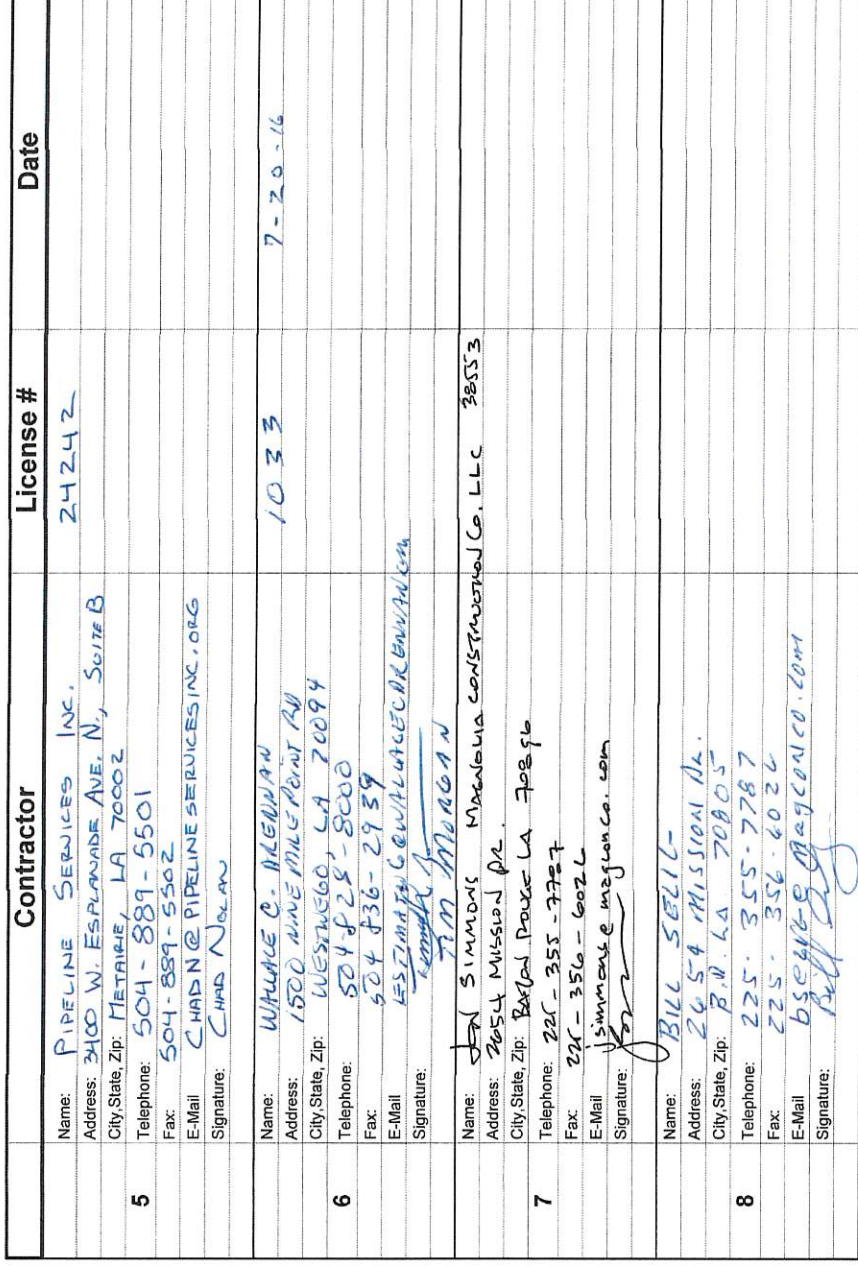 Contractor License # Date
5
Name: PIPELINE SERVICES INC. 24242
Address: 3400 W. ESPLANADE AVE. N., SUITE B
City,State, Zip: METAIRIE, LA 70002
Telephone: 504-889-5501
Fax: 504-889-5502
E-Mail CHADN@PIPELINESERVICESINC.ORG
Signature: CHAD NOLAN
6
Name: WALLACE C. DRENNAN 1033 7-20-16
Address: 1500 NINE MILE POINT RD
City,State, Zip: WESTWEGO, LA 70094
Telephone: 504-828-8000
Fax: 504 836-2939
E-Mail
Signature:
MORGAN
7
Name: JON SIMMONS MAGNOLIA CONSTRUCTION CO. LLC 38553
Address: 2654 MISSION DR.
City,State, Zip: BATON ROUGE LA 70896
Telephone: 225-355-7787
Fax: 225-356-6026
E-Mail jsimmons@magconco.com
Signature:
8
Name: BILL SELIL
Address: 2654 MISSION DR.
City,State, Zip: B.R. LA 70805
Telephone: 225. 355-7787
Fax: 225. 356.6026
E-Mail
Signature: